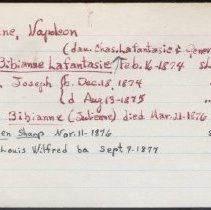 ne, Napoleon
(dau. Chas. Lafantasie &
Bibianne Lafantasie Feb. 16-1874
Joseph (b. Dec. 18, 1874
(d Aug 13-1875
Bibianne (Julienne) died Mar. 21-1876
en Sharp Nov. 11-1876
Louis Wilfred ba Sept 9-1877